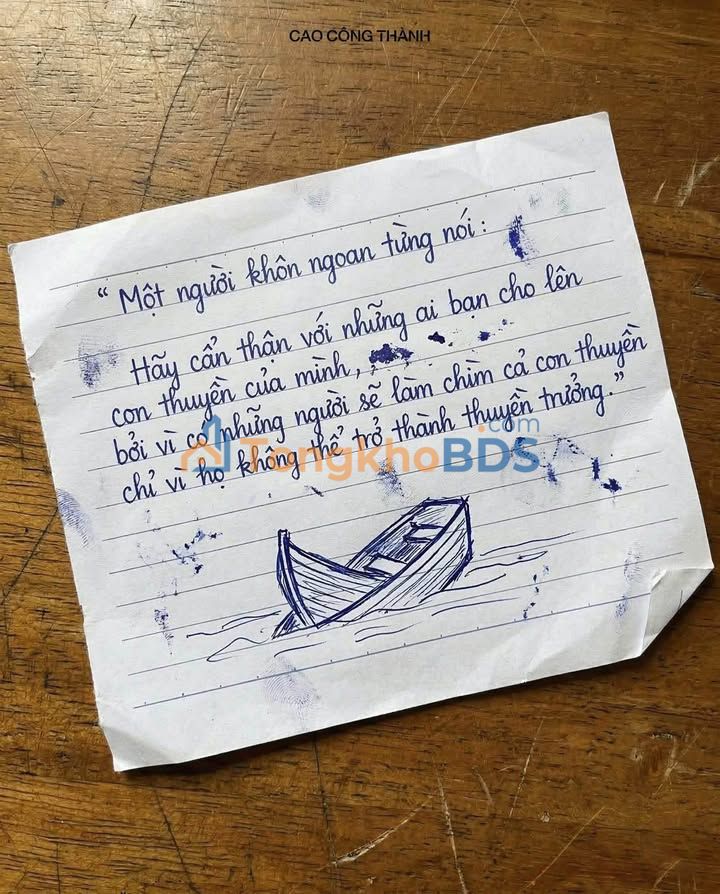 CAO CÔNG THÀNH
“ Một người khôn ngoan từng nói :
Hãy cẩn thận với những ai bạn cho lên
con thuyền của mình,
bởi vì có những người sẽ làm chìm cả con thuyền
chỉ vì họ không thể trở thành thuyền trưởng.”
TongkhoBDS.com